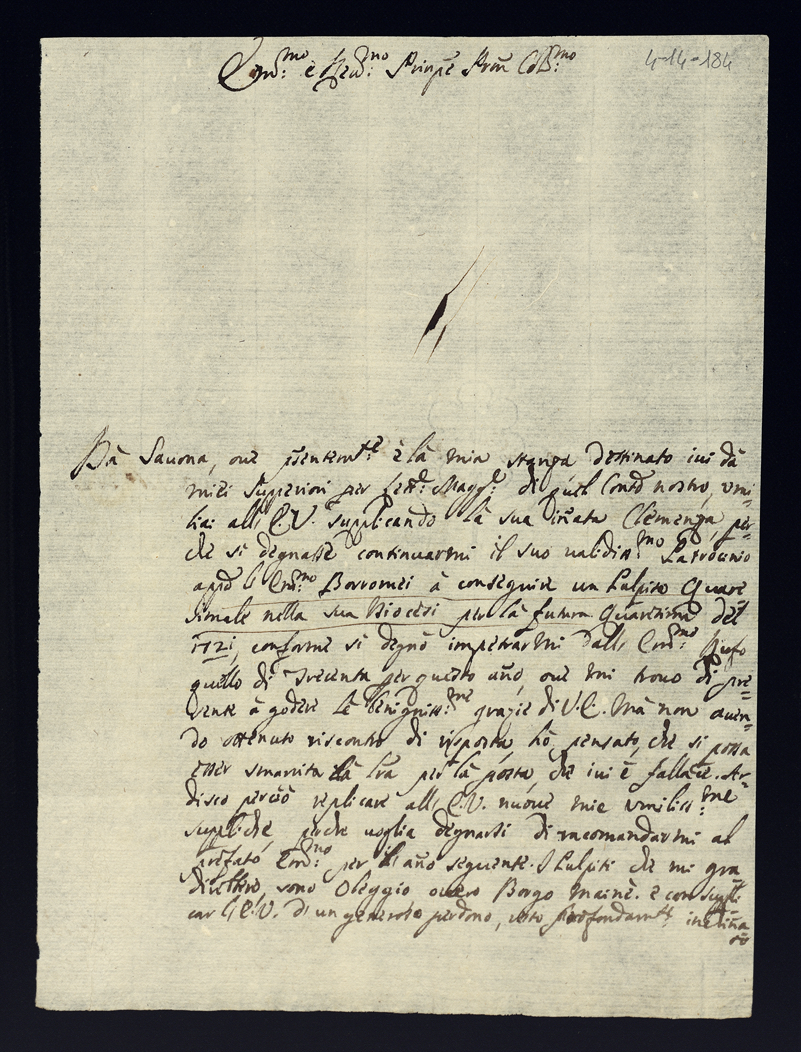 Em:mo e Rev:mo Prinpē Prōn Coll:mo
4-14-184
Dà Savona, oue pñtemte: è la mia stanza destinato iui dà
miei superiori per lett:e Magg:e di quel Conto nostro, umi=
liai all'E.V. supplicando la sua inata Clemenza, per=
che si degnasse continuarmi il suo validiss:mo Patrocinio
apō l'Em:mo Borromei à conseguire un Pulpito Quare
simale nella sua Diocesi per la futura Quaresima del
1721, conforme si degnò impetrarmi dall'Em:mo Rufo
quello di Trecenta per questo anō, oue mi trouo di pre=
sente à godere le benigniss:me grazie di V.E. Mà non auen=
do ottenuto riscontro di risposta, hò pensato, che si possa
esser smarrita la tra per la posta, che iui è fallace. Ar=
disco perciò replicare all'E.V. nuoue mie umiliss:me
suppliche, perche uoglia degnarsi di racomandarmi al
prefato Em:mo per il anō seguente. I Pulpiti che mi gra
direbbero, sono Oleggio ouero Borgo Mainē. e con suppli
car l'E.V. di un generoso perdono, resto profondamte inclina
to